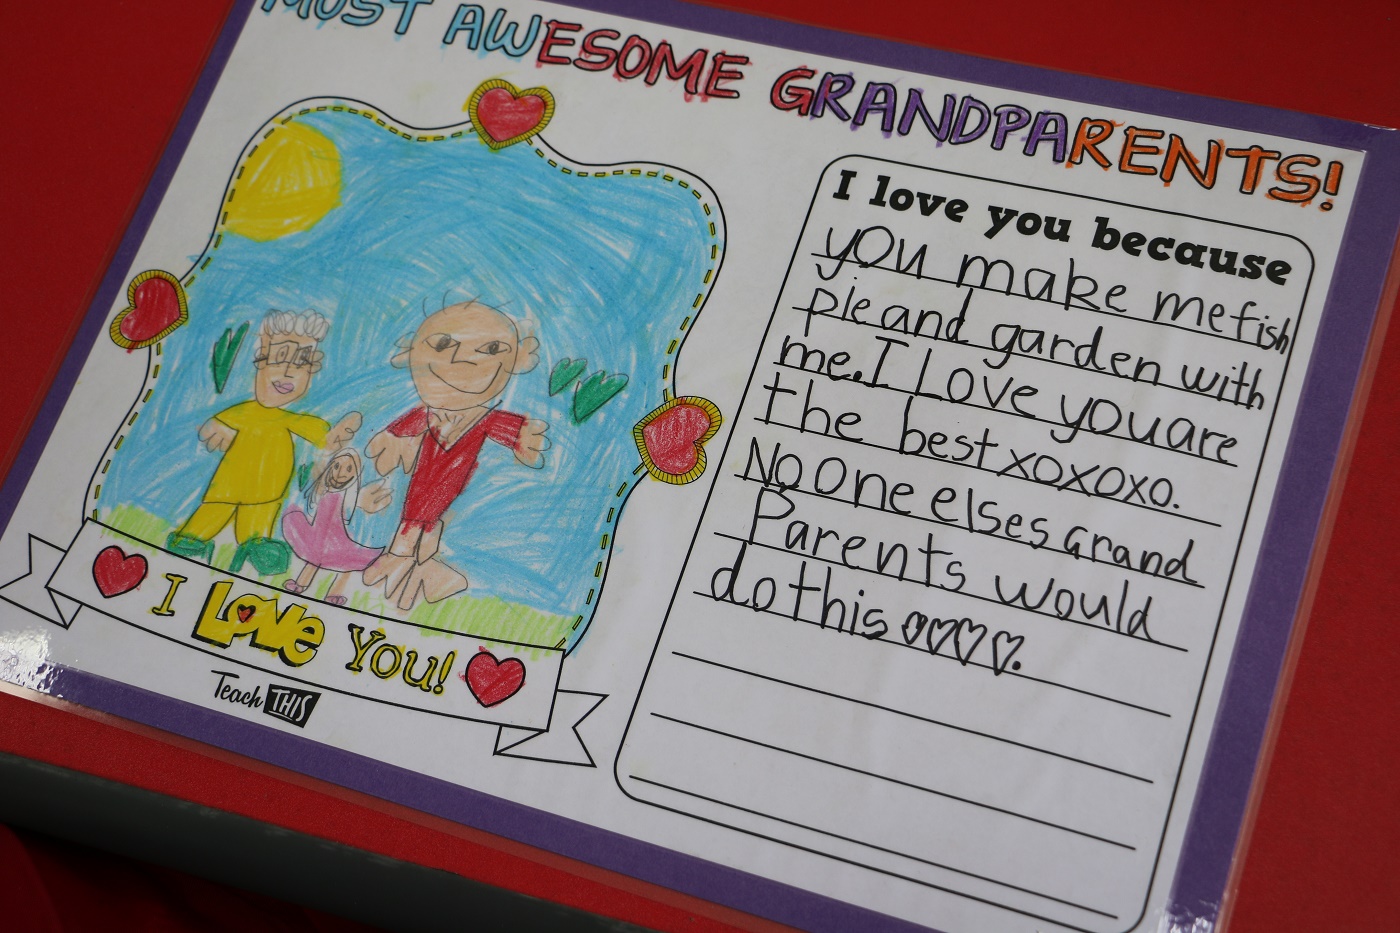 MOST AWESOME GRANDPARENTS!
I love you because
you make me fish
pie and garden with
me. I Love you are
the best xoxoxo.
No one elses Grand
Parents would
do this ♡♡♡♡.
I LOVE You!
Teach THIS